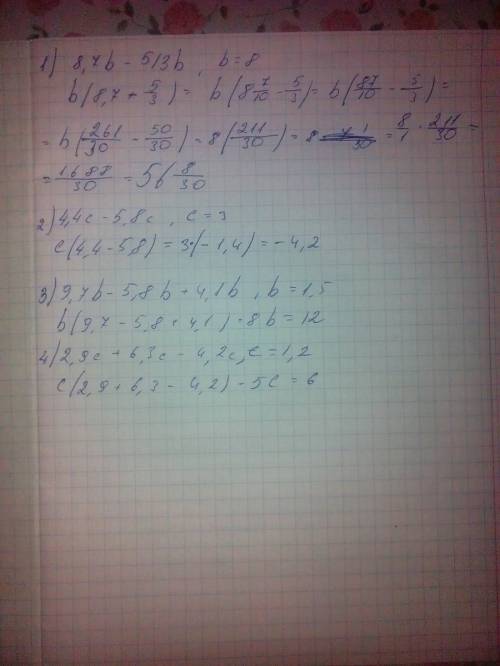 1) 8,7b - 5/3b, b = 8
b(8,7 + 5/3) = b(8 7/10 - 5/3) = b(87/10 - 5/3) =
= b(261/30 - 50/30) = 8(211/30) = 8 = 8/1 · 211/30 =
= 1688/30 = 56 8/30
2) 4,4c - 5,8c, c = 3
c(4,4 - 5,8) = 3·(-1,4) = -4,2
3) 9,7b - 5,8b + 4,1b, b = 1,5
b(9,7 - 5,8 + 4,1) - 8b = 12
4) 2,9c + 6,3c - 4,2c, c = 1,2
c(2,9 + 6,3 - 4,2) - 5c = 6